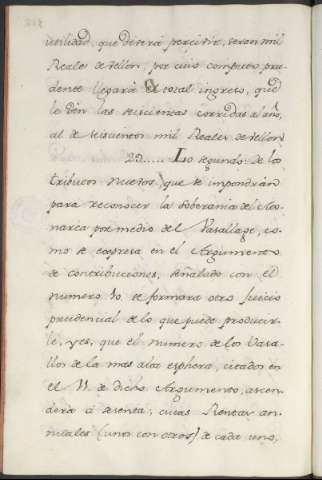 utilidad, que deverá percivir, seran mil
Reales de vellon, por cuio computo pru-
dente llegará el total ingreso, que
le den las seiscientas corridas al año,
al de seiscientos mil Reales de vellon
29..... Lo segundo: de los
tributos nuevos, que se impondrán
para reconocer la soberania del Mo-
narca por medio del Vasallage, co-
mo se expresa en el Argumento
de contribuciones, señalado con el
numero 10. se formará otro Juicio
prudencial de lo que puede producir-
le, yes, que el numero de los Vasa-
llos de la mas alta esphera, citados en
el 11 de dicho Argumento, ascen-
derá á sesenta; cuias Rentas an-
nuales (unos con otros) de cada uno,